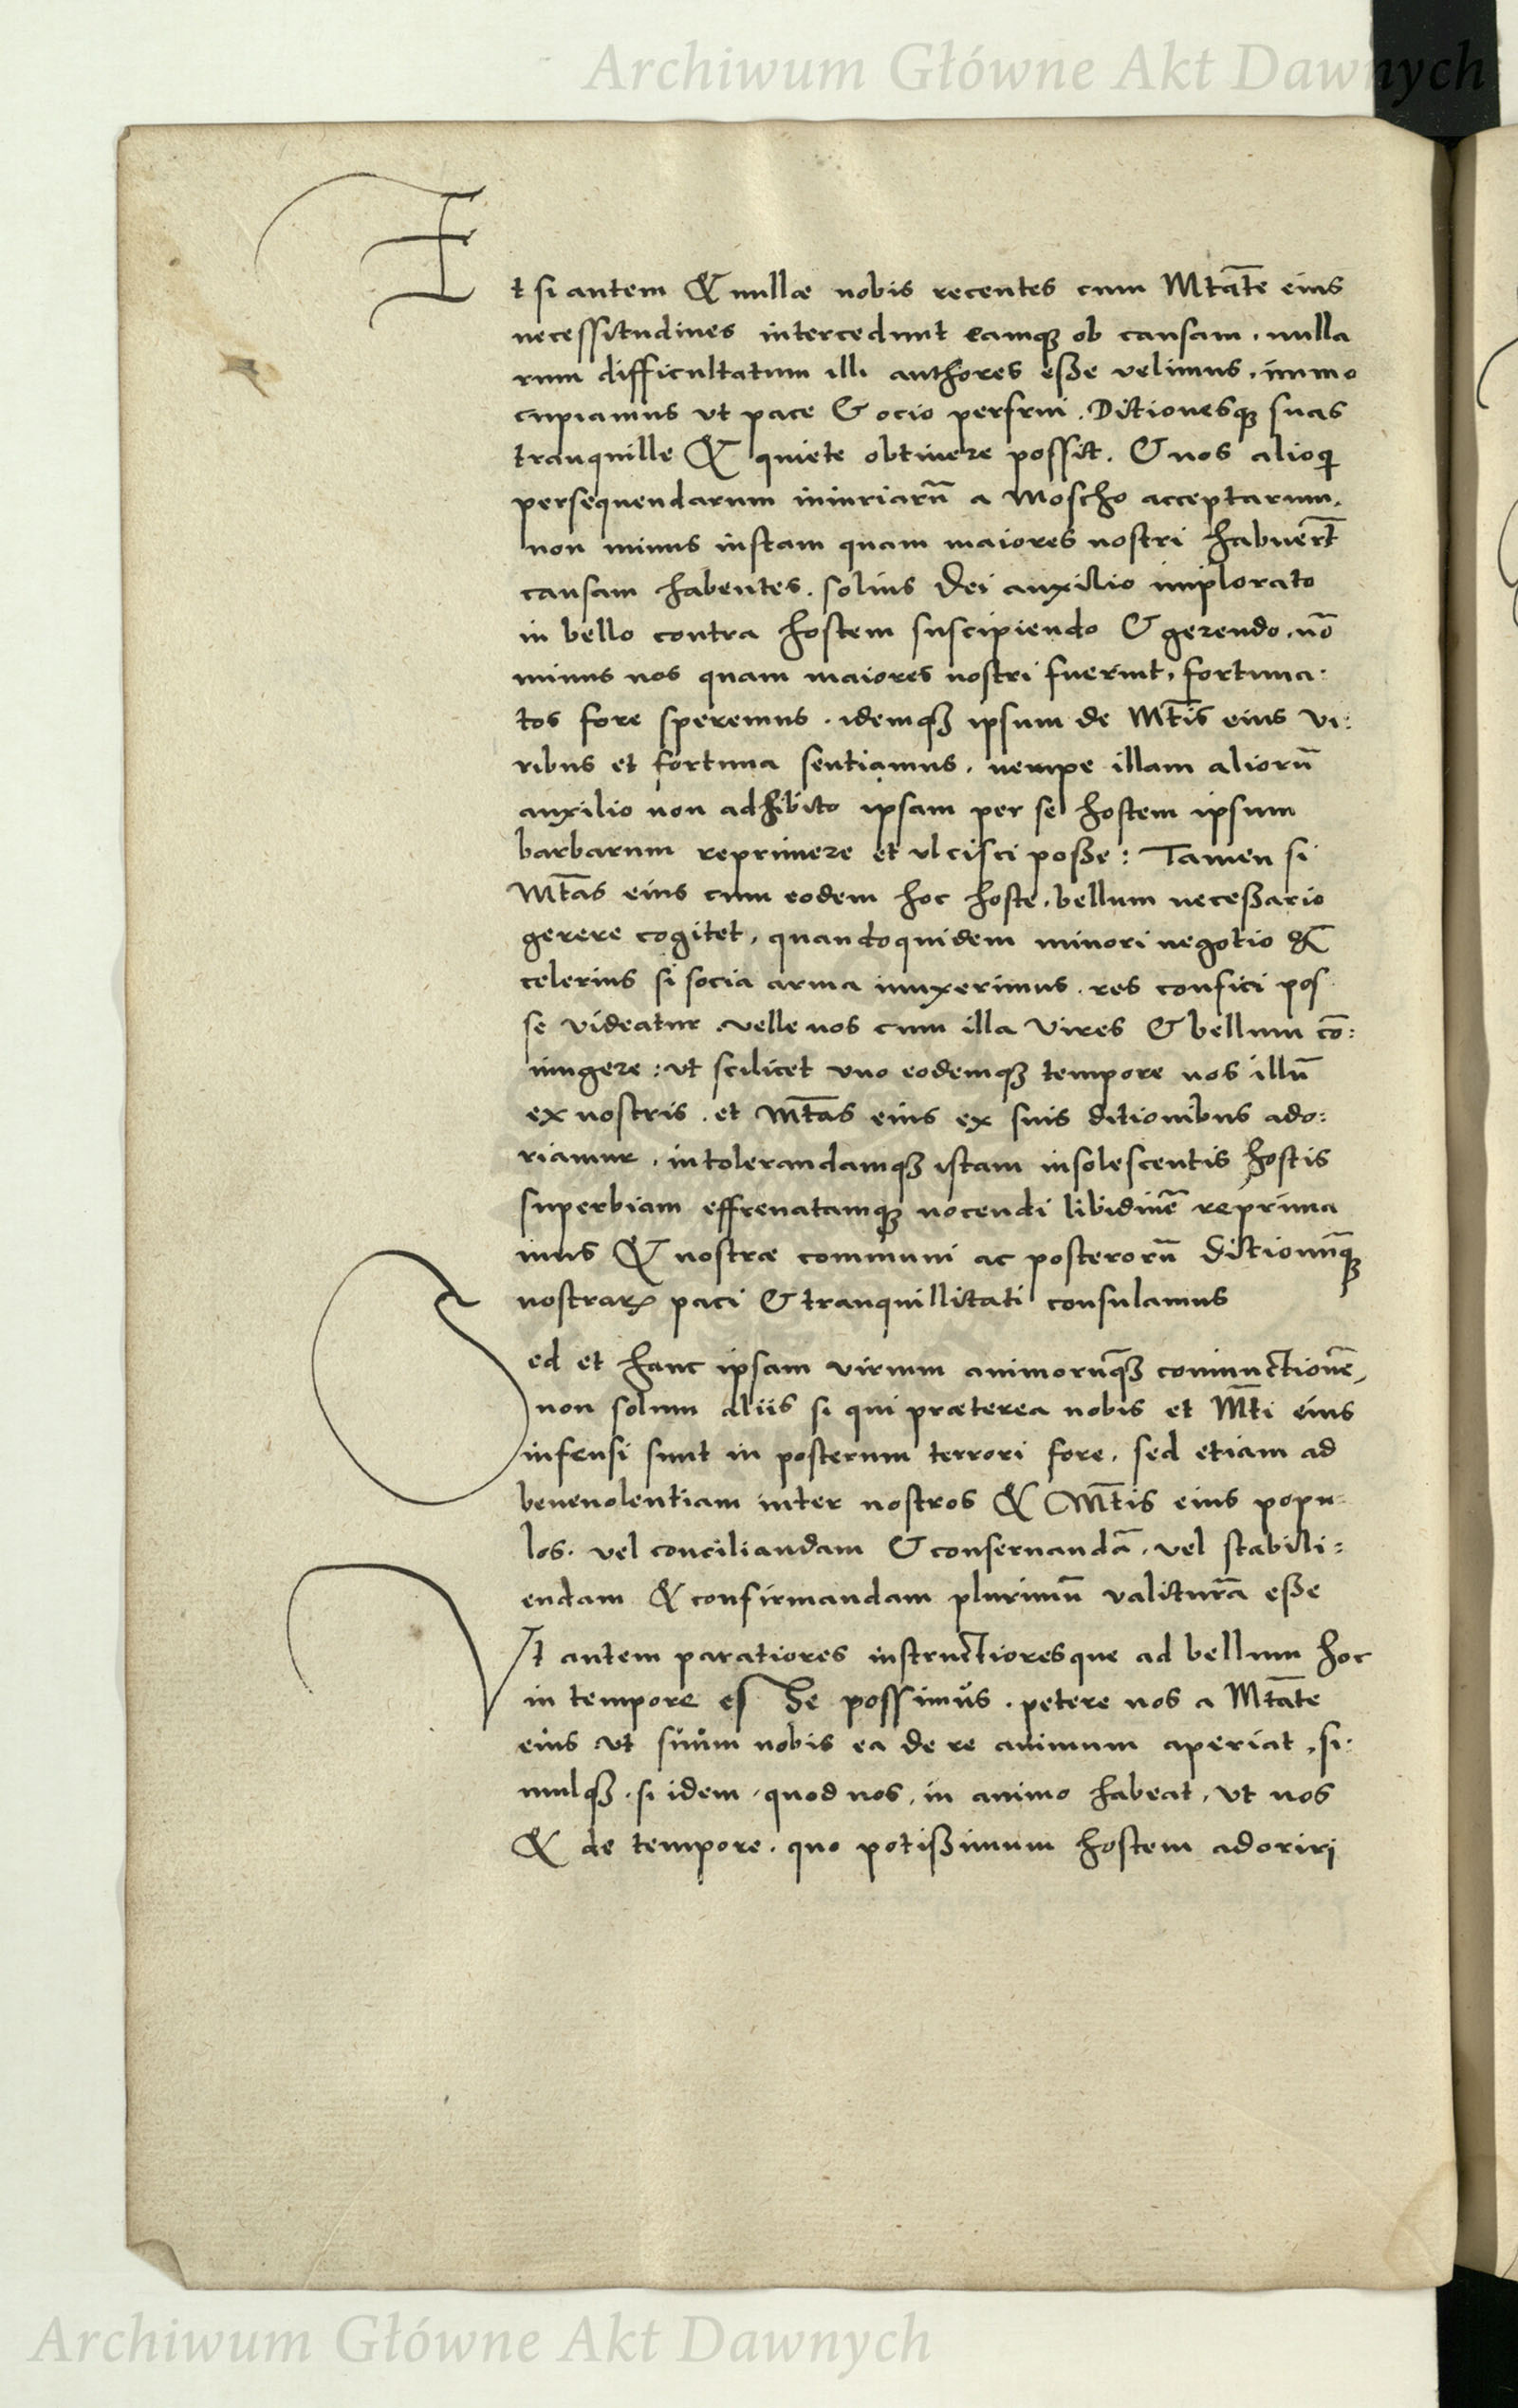 Archiwum Główne Akt Dawnych
Et si autem & nullæ nobis recentes cum Mtāte eius
necessitudines intercedunt eamqꝫ ob causam, nulla
rum difficultatum illi authores eße velimus, immo
cupiamus vt pace & ocio perfrui. Ditionesqꝫ suas
tranquille & quiete obtinere possit. & nos alioqi
persequendarum iniuriarū a Moscho acceptarum,
non minus iustam quam maiores nostri habuerūt
causam habentes. solius Dei auxilio implorato
in bello contra hostem suscipiendo & gerendo, nō
minus nos quam maiores nostri fuerint, fortuna:
tos fore speremus. idemqꝫ ipsum de Mtīs eius vi:
ribus et fortuna sentiamus, nempe illam aliorū
auxilio non adhibito ipsam per se hostem ipsum
barbarum reprimere et vlcisci poße: Tamen si
Mtās eius cum eodem hoc hoste, bellum neceßario
gerere cogitet, quandoquidem minori negotio &
celerius si socia arma iunxerimus. res confici pos
se videatur. velle nos cum illa vires & bellum cō:
iungere: vt scilicet vno eodemqꝫ tempore nos illū
ex nostris. et Mtās eius ex suis ditionibus ado:
riamur, intolerandamqꝫ istam insolescentis hostis
superbiam effrenatamqꝫ nocendi libidinē reprima
mus & nostræ communi ac posterorū ditionūqꝫ
nostrarꝝ paci & tranquillitati consulamus
Sed et hanc ipsam virium animorūqꝫ coniunctionē,
non solum aliis si qui præterea nobis et Mti eius
infensi sunt in posterum terrori fore, sed etiam ad
beneuolentiam inter nostros & Mtis eius popu=
los. vel conciliandam & conseruandā, vel stabili=
endam & confirmandam plurimū valiturā eße
Vt autem paratiores instructioresque ad bellum hoc
in tempore esse possimus. petere nos a Mtāte
eius vt suum nobis ea de re animum aperiat, si:
mulqꝫ, si idem, quod nos, in animo habeat, vt nos
& de tempore, quo potißimum hostem adoriri
Archiwum Główne Akt Dawnych